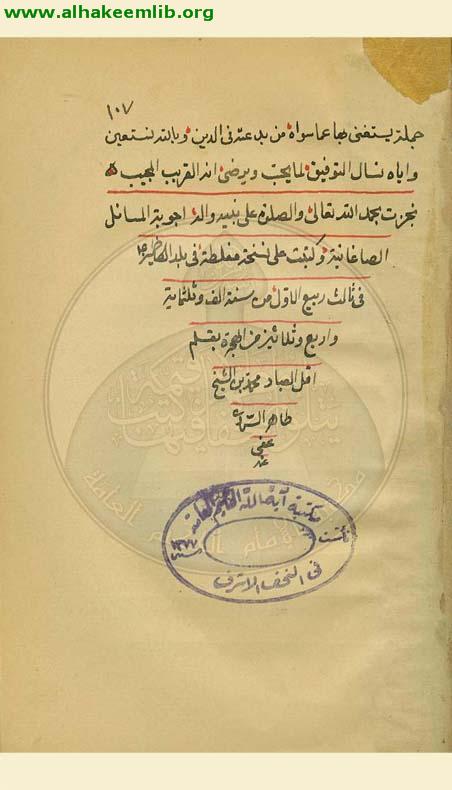 www.alhakeemlib.org
١٠٧
جملة يستغنى بها عما سواه من بدعة في الدين وبالله نستعين
واياه نسال التوفيق لما يحب ويرضى انه القريب المجيب
نجزت بحمد الله تعالى والصلوة على نبيه واله اجوبة المسائل
الصاغانية وكتبت على نسخة مغلطة في بلد
في ثالث ربيع الاول من سنة الف وثلثماية
واربع وثلاثين من الهجرة بقلم
اقل العباد محمد بن الشيخ
طاهر
عفى
عنه
مكتبة آية الله الحكيم العامة
تأسست
سنة ١٣٧٧
في النجف الاشرف